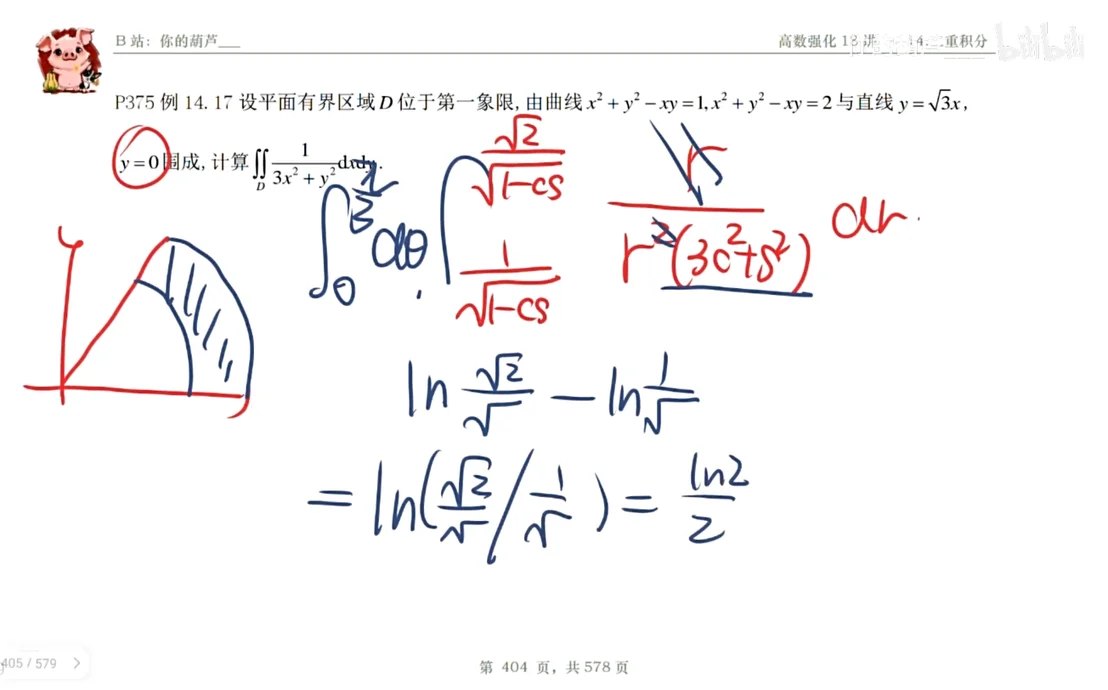 B 站：你的葫芦___
高数强化 18 讲
二重积分
bilibili
P375 例 14.17 设平面有界区域 D 位于第一象限, 由曲线 x² + y² − xy = 1, x² + y² − xy = 2 与直线 y = √3x,
y = 0 围成, 计算 ∬_D 1/(3x² + y²) dxdy.
∫_0^{π/3} dθ · ∫_{1/√(1-cs)}^{√2/√(1-cs)} r/(r²(3c²+s²)) dr.
ln √2/√ − ln 1/√
= ln(√2/√ / 1/√) = ln2/2
405 / 579 >
第 404 页，共 578 页